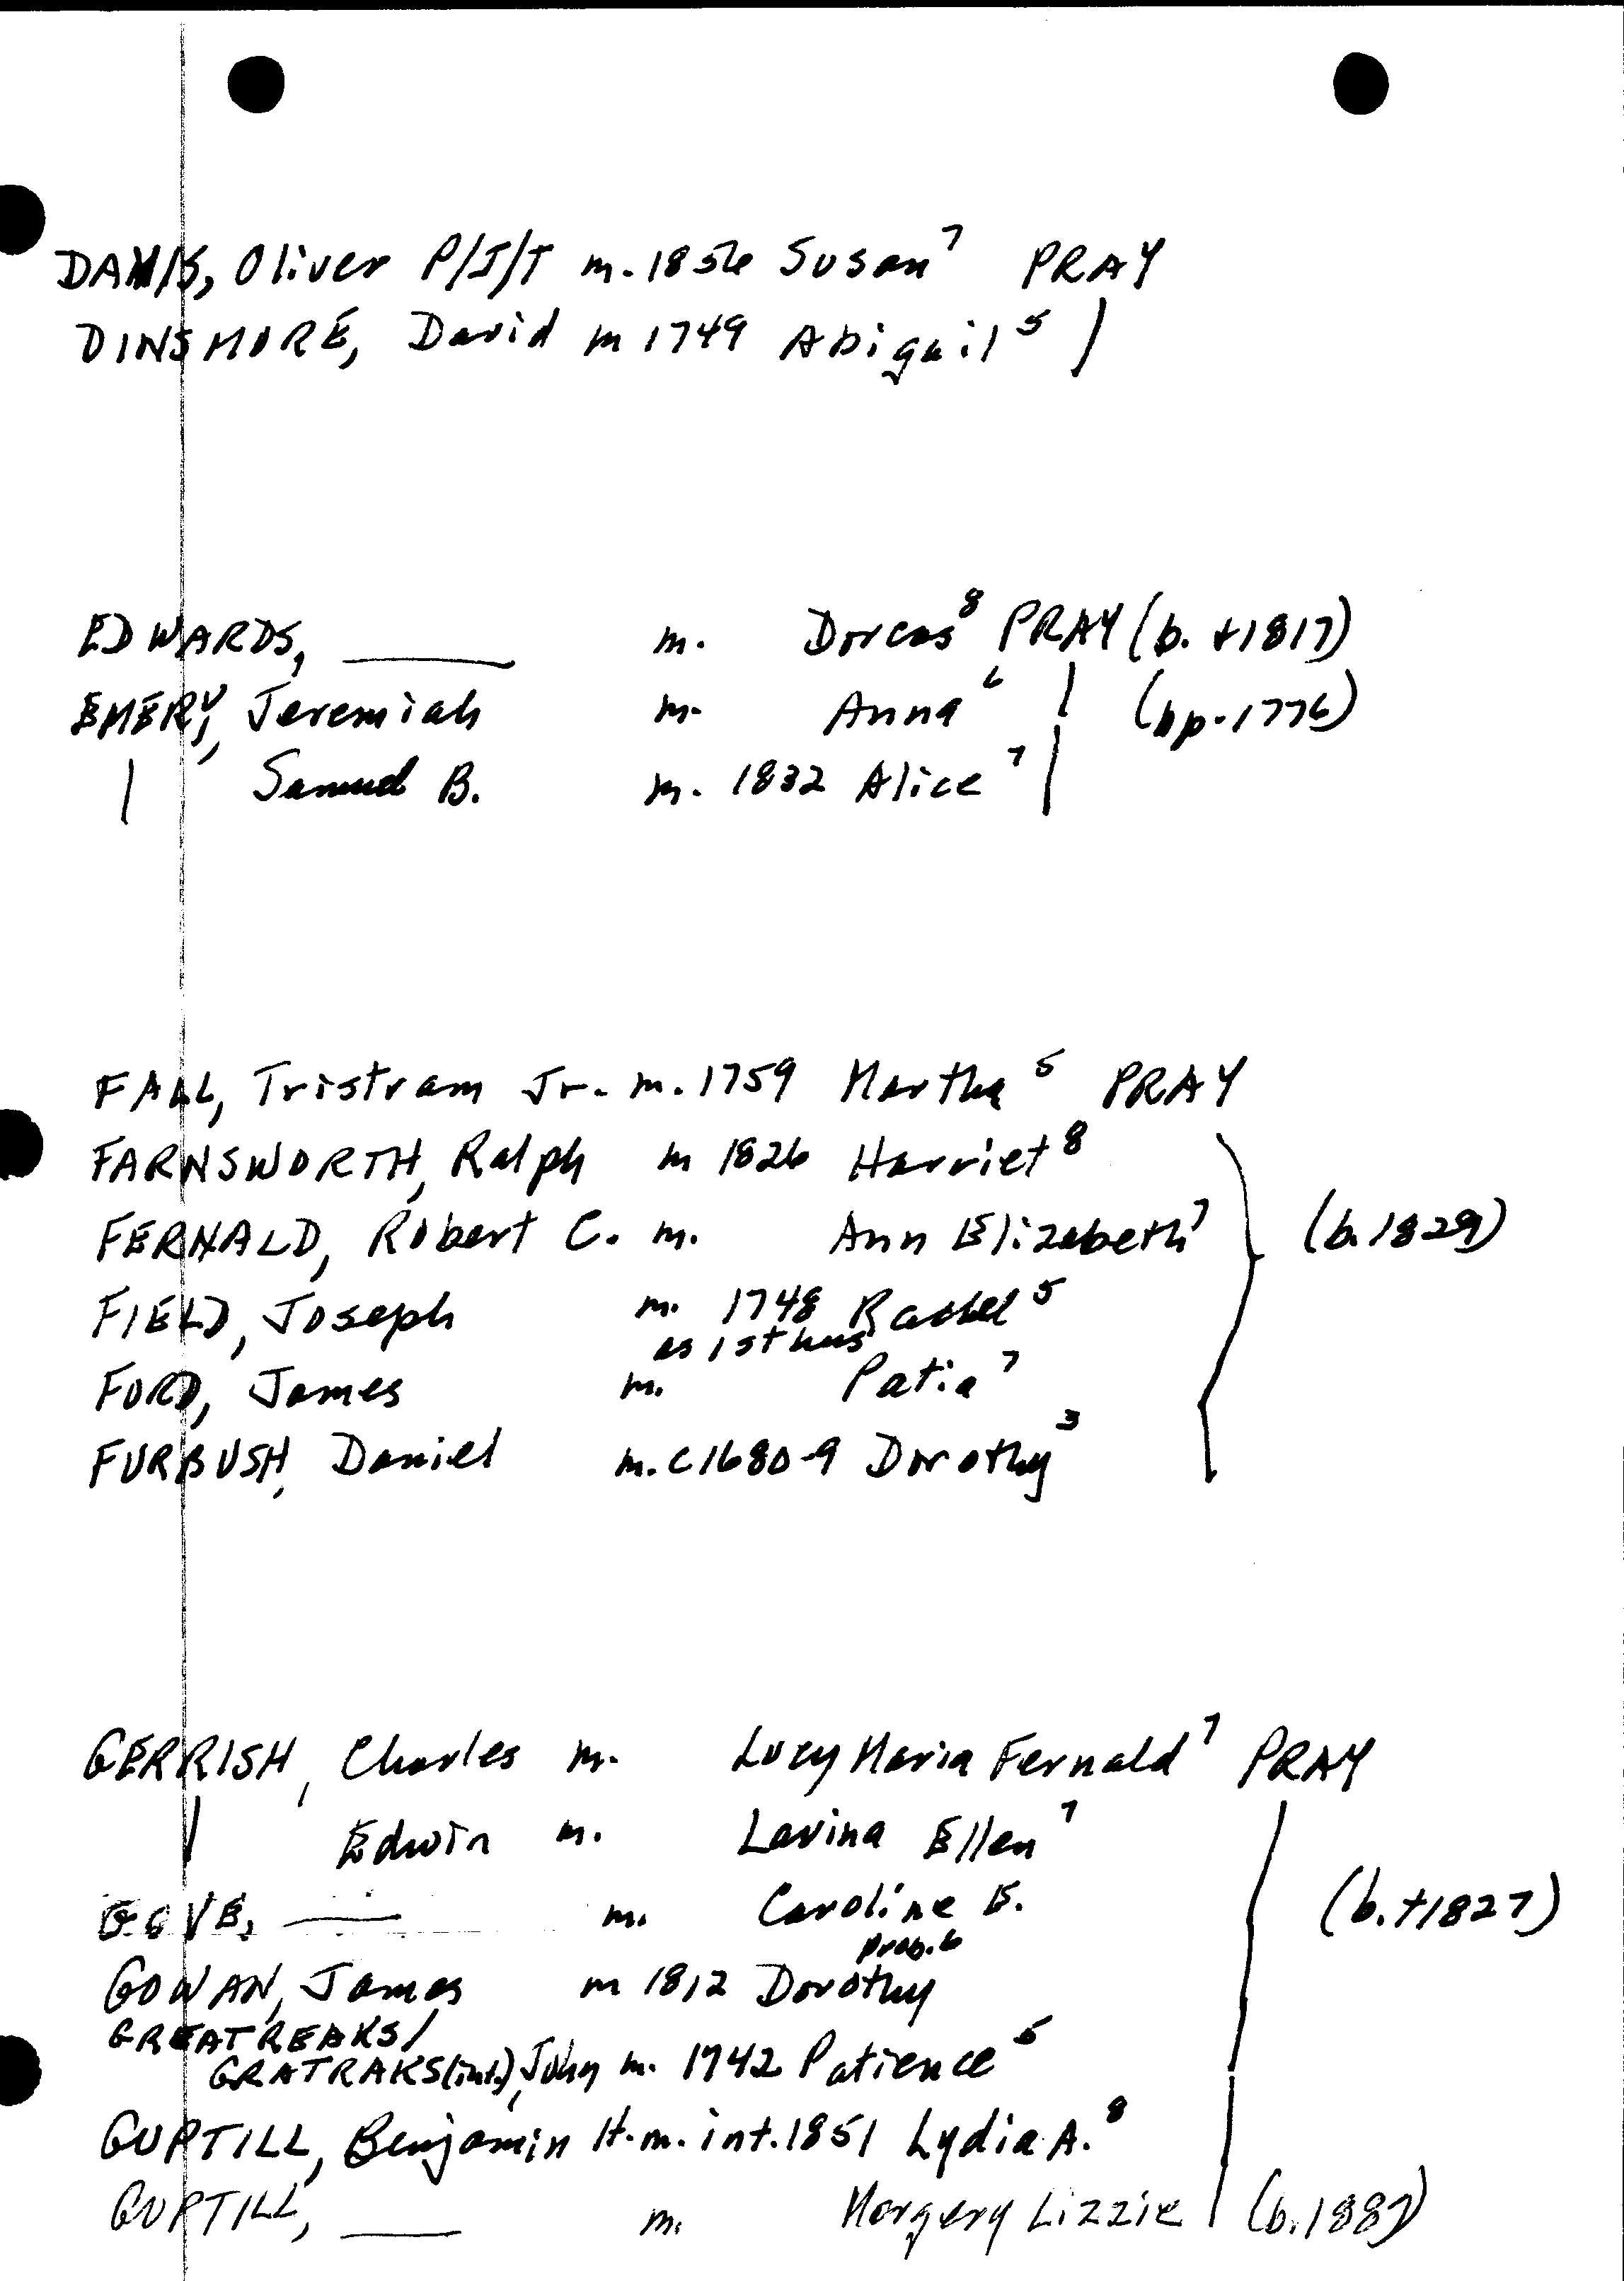 DAVIS, Oliver P/J/T m. 1856 Susan⁷ PRAY
DINSMORE, David m 1749 Abigail⁵ |
EDWARDS, ____ m. Dorcas⁸ PRAY (b. +1817)
EMERY, Jeremiah m. Anna⁶ | (bp. 1776)
| Samuel B. m. 1832 Alice⁷ |
FALL, Tristram Jr. m. 1759 Martha⁵ PRAY
FARNSWORTH, Ralph m 1826 Harriet⁸
FERNALD, Robert C. m. Ann Elizabeth⁷ (b. 1829)
FIELD, Joseph m. 1748 Rachel⁵
as 1st hus
FORD, James m. Patia⁷
FURBUSH, Daniel m. c1680-9 Dorothy³
GERRISH, Charles m. Lucy Maria Fernald⁷ PRAY
| Edwin m. Lavina Ellen⁷
GOVE, ____ m. Caroline E. (b. +1827)
prob. 6
GOWAN, James m 1812 Dorothy
GREATREAKS/
GRATRAKS (int.), John m. 1742 Patience⁵
GUPTILL, Benjamin H. m. int. 1851 Lydia A.⁸
GUPTILL, ____ m. Margery Lizzie | (b. 1887)